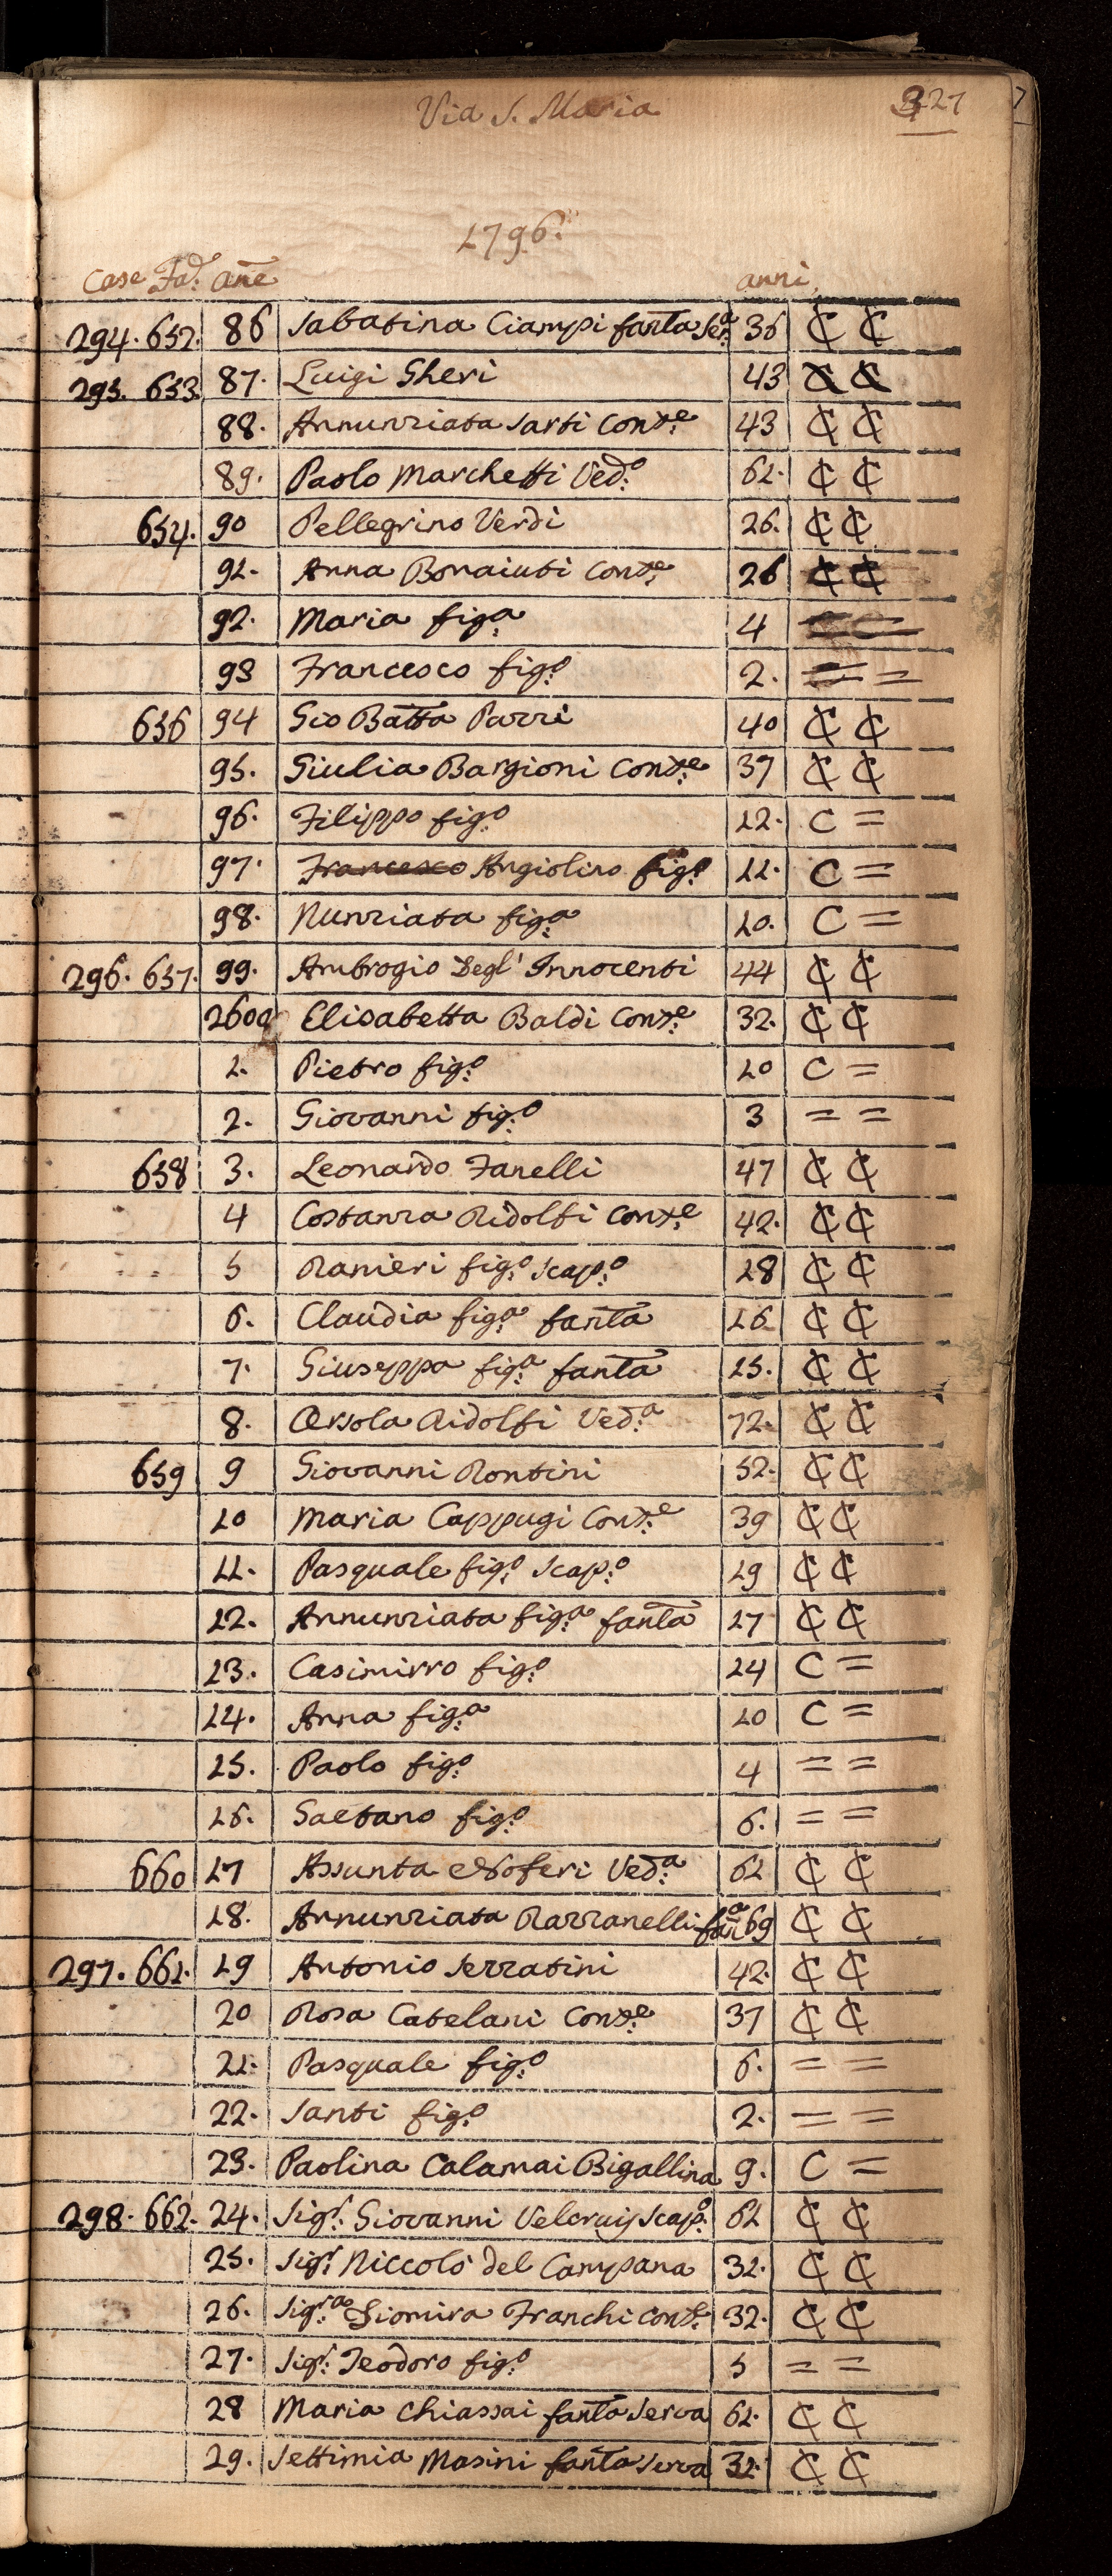 Via S. Maria
327
1796.
Case Fad. anē
anni
294. 652. 86 Sabatina Ciampi fanta Ser.a 36 C C
295. 653. 87. Luigi Gheri 43 C C
88. Annunziata Sarti Cons.e 43 C C
89. Paolo Marchetti Ved.o 61. C C
654. 90 Pellegrino Verdi 26. C C
91. Anna Bonaiuti Cons.e 26 C C
92. Maria fig.a 4
93 Francesco fig.o 2. = =
656 94 Gio Batta Parri 40 C C
95. Giulia Bargioni Cons.e 37 C C
96. Filippo fig.o 12. C =
97. Francesco Angiolino fig.o 11. C =
98. Nunziata fig.a 10. C =
296. 657. 99. Ambrogio Degl' Innocenti 44 C C
2600 Elisabetta Baldi Cons.e 32. C C
1. Pietro fig.o 10 C =
2. Giovanni fig.o 3 = =
658 3. Leonardo Fanelli 47 C C
4 Costanza Ridolfi Cons.e 42. C C
5 Ranieri fig.o Scap.o 18 C C
6. Claudia fig.a fanta 16 C C
7. Giuseppa fig.a fanta 15. C C
8. Orsola Ridolfi Ved.a 72. C C
659 9 Giovanni Rontini 52. C C
10 Maria Cappugi Cons.e 39 C C
11. Pasquale fig.o Scap.o 19 C C
12. Annunziata fig.a fanta 17 C C
13. Casimirro fig.o 14 C =
14. Anna fig.a 10 C =
15. Paolo fig.o 4 = =
16. Gaetano fig.o 6. = =
660 17 Assunta Noferi Ved.a 61 C C
18. Annunziata Razzanelli fan.a 69 C C
297. 661. 19 Antonio Serratini 42. C C
20 Rosa Catelani Cons.e 37 C C
21. Pasquale fig.o 6. = =
22. Santi fig.o 2. = =
23. Paolina Calamai Bigallina 9. C =
298. 662. 24. Sig.r Giovanni Velcruijs Scap.o 61 C C
25. Sig.r Niccolò del Campana 32. C C
26. Sig.ra Giomira Franchi Cons.e 32. C C
27. Sig.r Teodoro fig.o 5 = =
28 Maria Chiassai fanta Serva 61. C C
29. Settimia Masini fanta Serva 32. C C